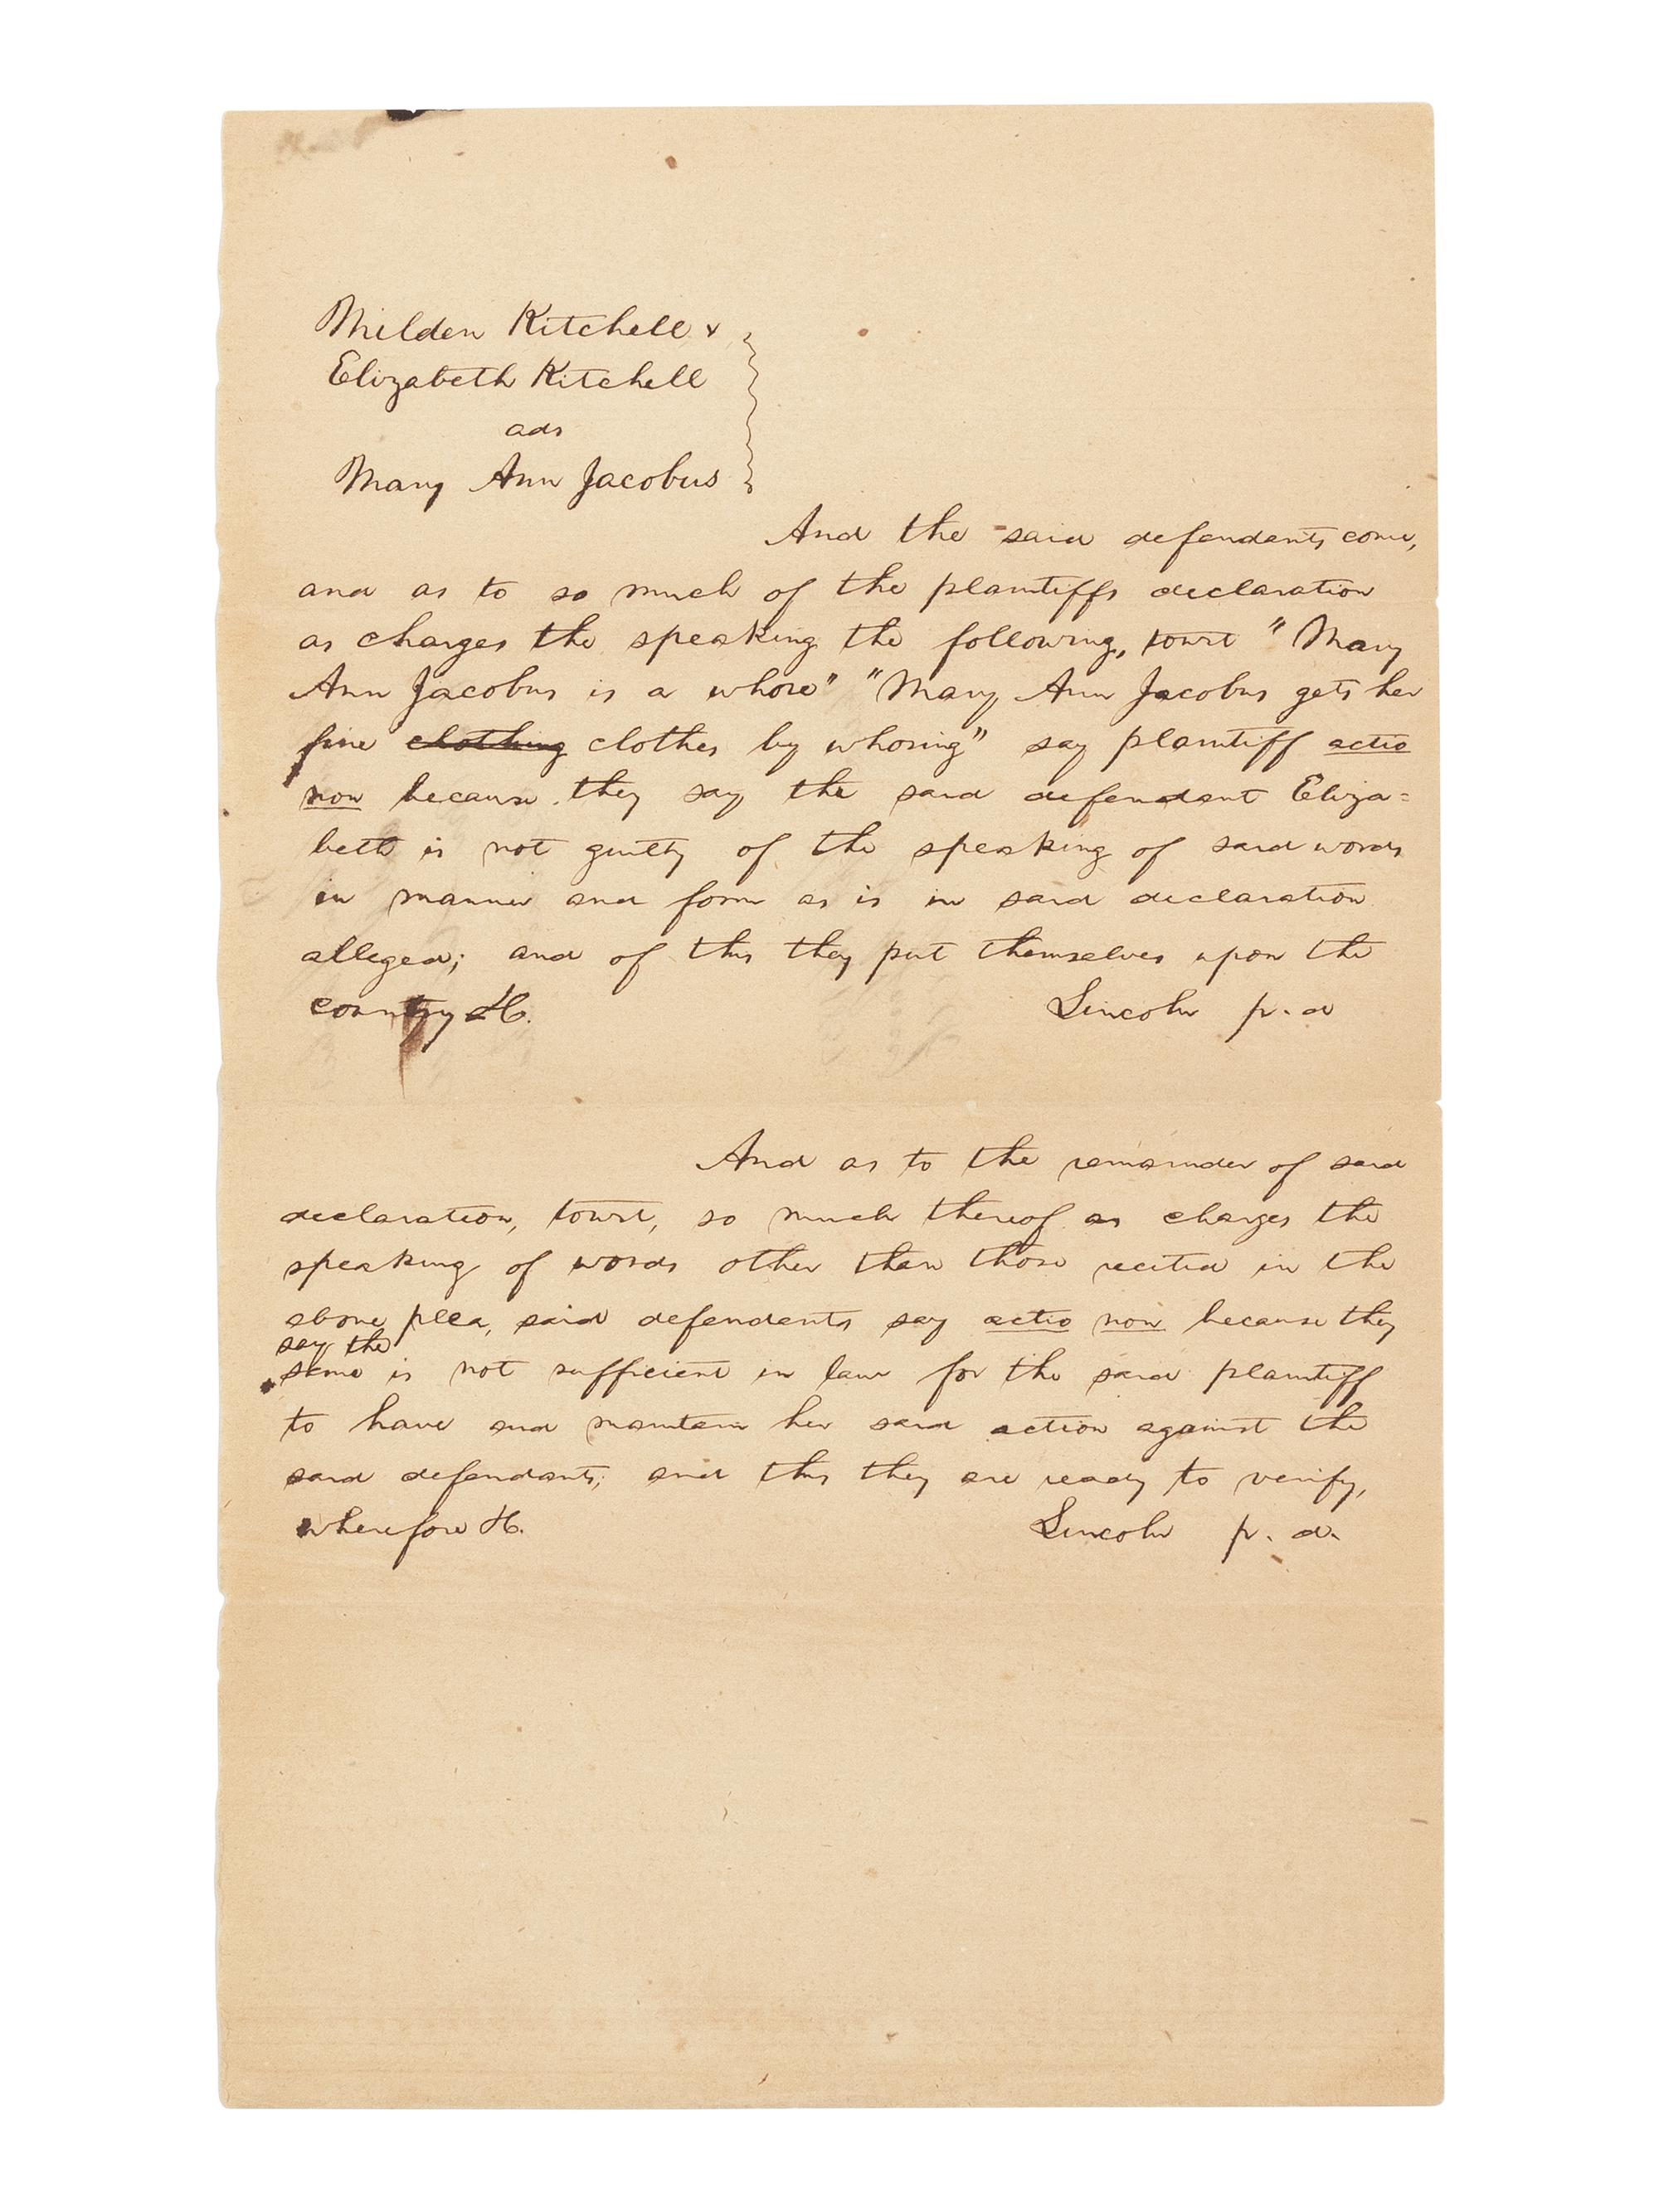 Milden Kitchell &
Elizabeth Kitchell
ads
Mary Ann Jacobus
And the said defendants come,
and as to so much of the plaintiffs declaration
as charges the speaking the following, towit "Mary
Ann Jacobus is a whore" "Mary Ann Jacobus gets her
fine clothing clothes by whoring" say plaintiff actio
non because they say the said defendant Eliza=
beth is not guilty of the speaking of said words
in manner and form as is in said declaration
alleged; and of this they put themselves upon the
country &c.
Lincoln p. d
And as to the remainder of said
declaration, towit, so much thereof as charges the
speaking of words other than those recited in the
above plea, said defendants say actio non because they
say the
same is not sufficient in law for the said plaintiff
to have and maintain her said action against the
said defendants; and this they are ready to verify,
wherefore &c.
Lincoln p. d.